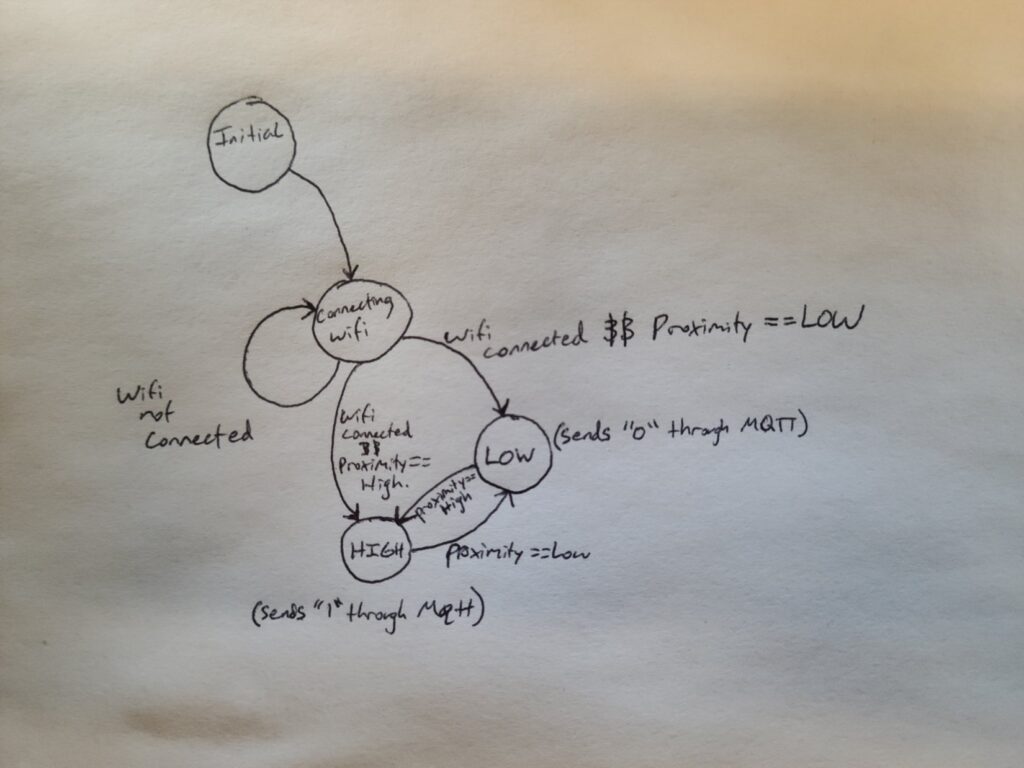 Initial
Connecting
Wifi
Wifi
connected $$ Proximity ==LOW
Wifi
not
Connected
Wifi
Connected
$$
Proximity==
High.
LOW
(sends "0" through MQTT)
proximity==
High
HIGH
Proximity ==Low
(sends "1" through MQTT)